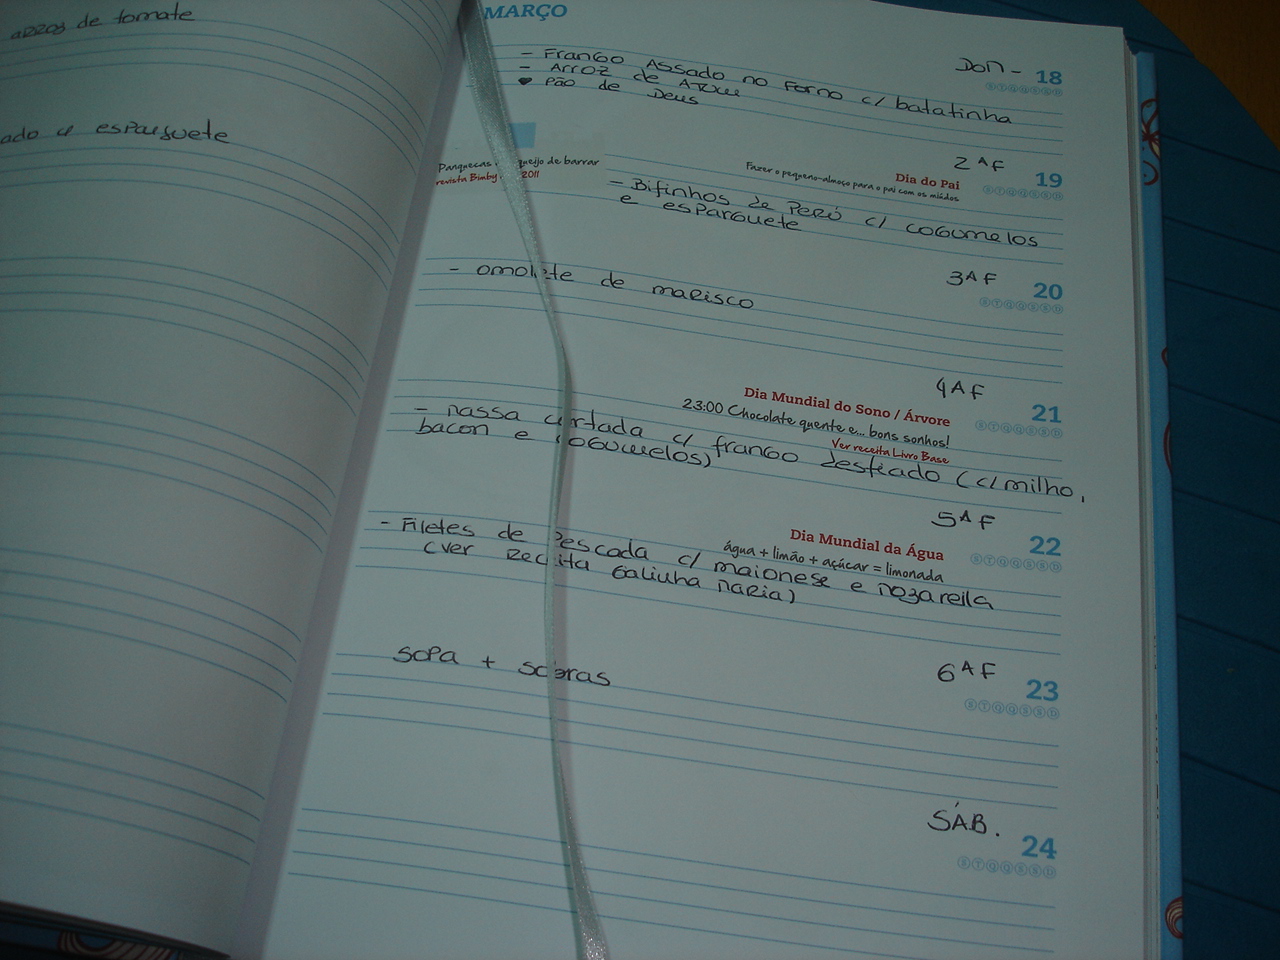 arroz de tomate
ado c/ esparguete
MARÇO
DOM - 18
- Frango Assado no Forno c/ batatinha
- Arroz de Atum
• Pão de Deus
2ªF
19
Dia do Pai
Fazer o pequeno-almoço para o pai com os miúdos
Panquecas queijo de barrar
revista Bimby 2011
- Bifinhos de Peru c/ cogumelos
e esparguete
3ªF
20
- omolete de marisco
4ªF
21
Dia Mundial do Sono / Árvore
23:00 Chocolate quente e... bons sonhos!
Ver receita Livro Base
- massa cortada c/ frango desfiado (c/ milho,
bacon e cogumelos)
5ªF
22
Dia Mundial da Água
água + limão + açúcar = limonada
- Filetes de Pescada c/ maionese e mozarella
(ver receita Galinha Maria)
6ªF
23
Sopa + sobras
SÁB.
24